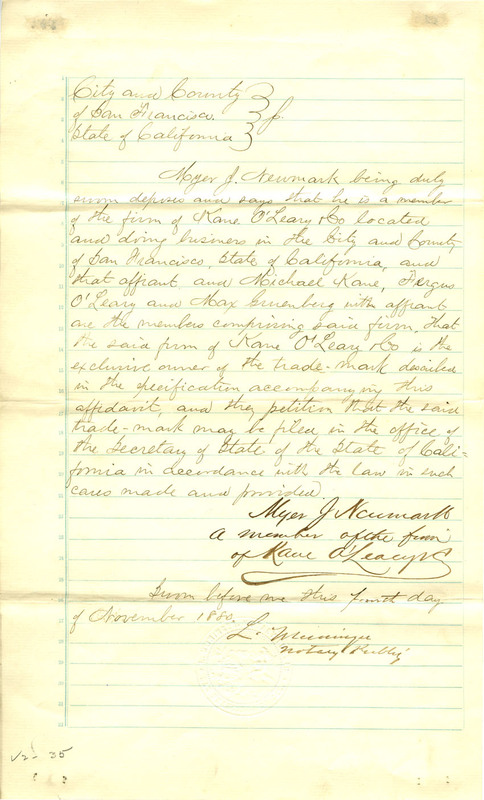 City and County
of San Francisco.
State of California
Myer J. Newmark being duly
sworn deposes and says that he is a member
of the firm of Kane O'Leary & Co located
and doing business in the City and County
of San Francisco, State of California, and
that affiant, and Michael Kane, Fergus
O'Leary and Max Gruenberg with affiant
are the members comprising said firm, that
the said firm of Kane O'Leary & Co is the
exclusive owner of the trade-mark described
in the specification accompanying this
affidavit, and they petition that the said
trade-mark may be filed in the office of
the Secretary of State of the State of Cali=
fornia in accordance with the law in such
cases made and provided.
Myer J Newmark
a member of the firm
of Kane O'Leary & Co
Sworn before me this fourth day
of November 1880.
L.
Notary Public
35